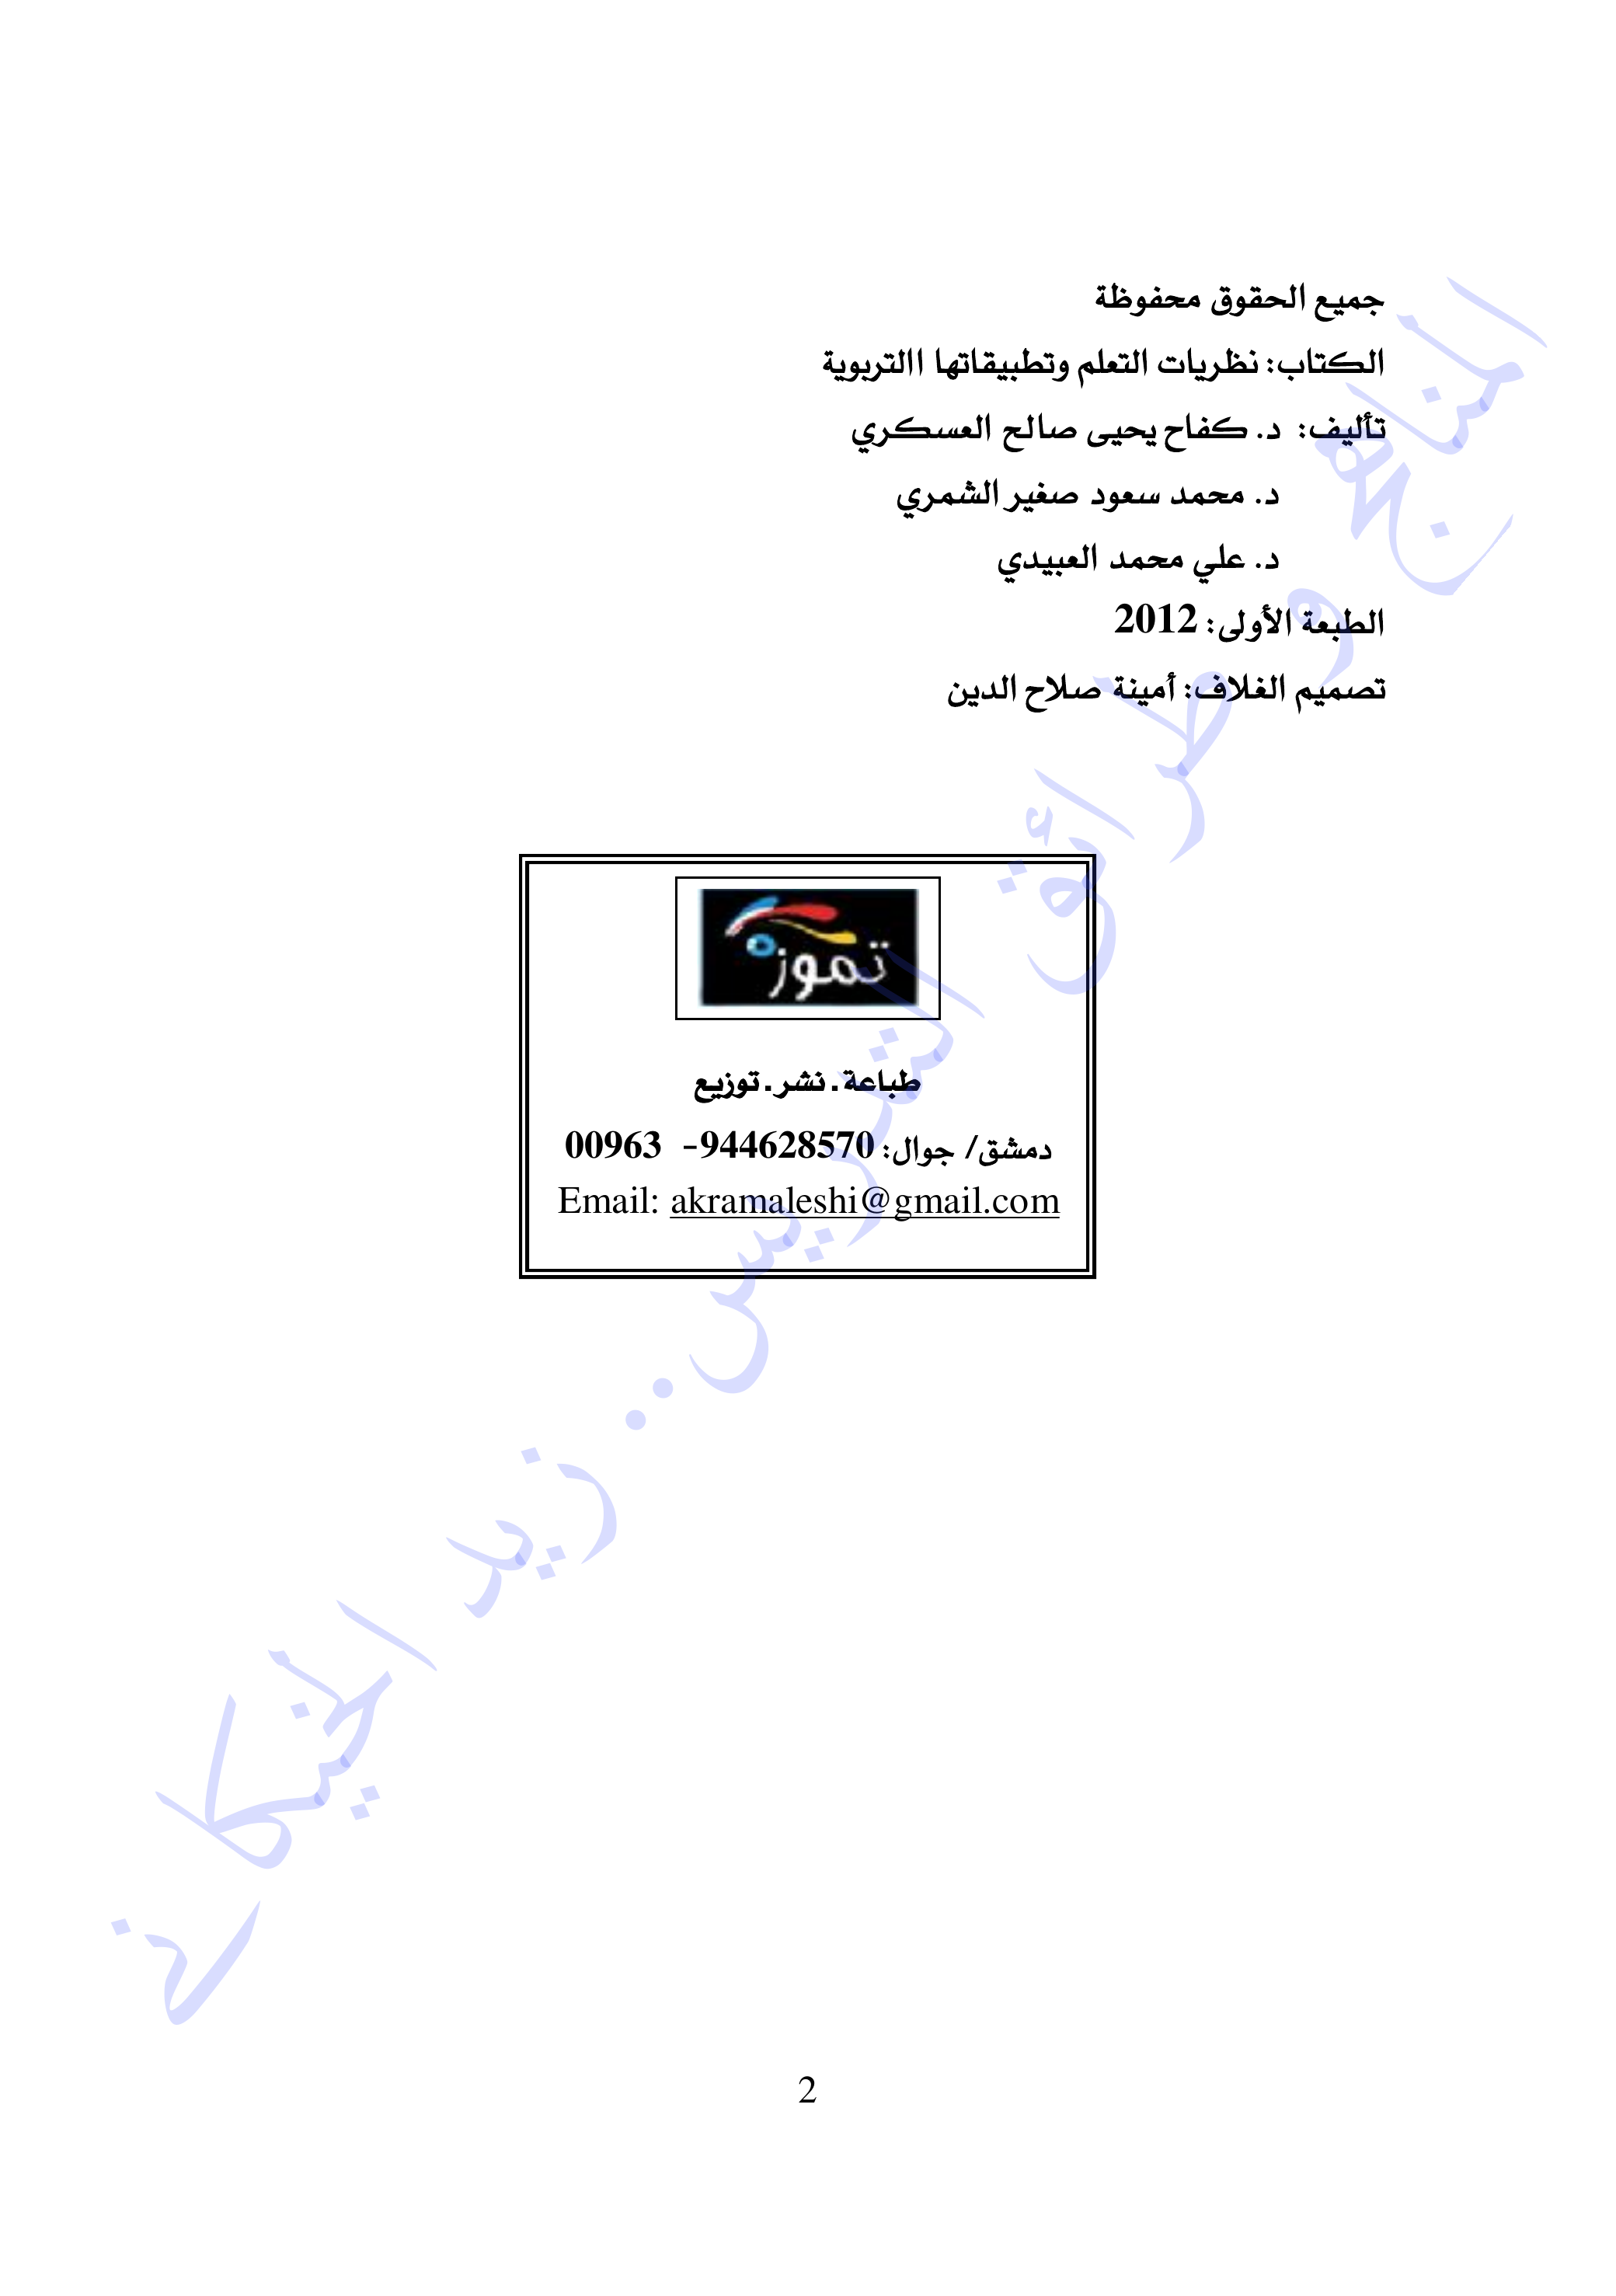 جميع الحقوق محفوظة
الكتاب: نظريات التعلم وتطبيقاتها االتربوية
تأليف: د. كفاح يحيى صالح العسكري
د. محمد سعود صغير الشمري
د. علي محمد العبيدي
الطبعة الأولى: 2012
تصميم الغلاف: أمينة صلاح الدين
تموز
طباعة. نشر. توزيع
دمشق/ جوال: 944628570- 00963
Email: akramaleshi@gmail.com
المناهج و طرائق التدريس.. زيد الخيكاني
2